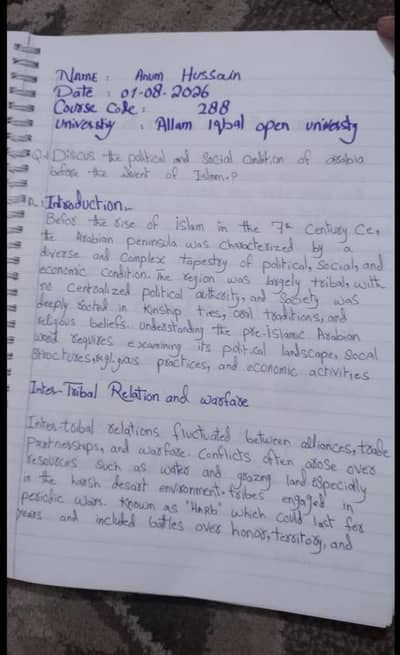 NAME : Anum Hussain
Date : 01-08-2026
Course Code : 288
University : Allam Iqbal open university
Q.1 Discus the political and Social Condition of Arabia
before the Advent of Islam.?
Introduction.
Befor the rise of islam in the 7th Century Ce,
the Arabian peninsula was characterized by a
diverse and Complex tapestry of political, Social, and
economic condition. The region was largely tribal, with
no centralized political authority, and Society was
deeply rooted in Kinship ties, oral traditions, and
religious beliefs. Understanding the pre-islamic Arabian
requires examining its political landscape, Social
Structures, religious practices, and economic activities
Inter-Tribal Relation and warfare
Inter-tribal relations fluctuated between alliances, trade
Partnerships, and warfare. Conflicts often arose over
resources such as water and grazing land especially
in the harsh desart environment. tribes engaged in
periodic wars. Known as "HARb" which could last for
years and included battles over honor, territory, and